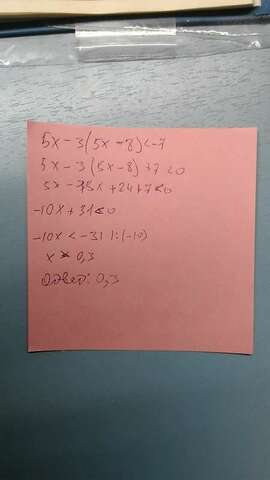 5x - 3(5x - 8) < -7
5x - 3(5x - 8) + 7 < 0
5x - 15x + 24 + 7 < 0
-10x + 31 < 0
-10x < -31 |:(-10)
x > 0,3
Ответ: 0,3